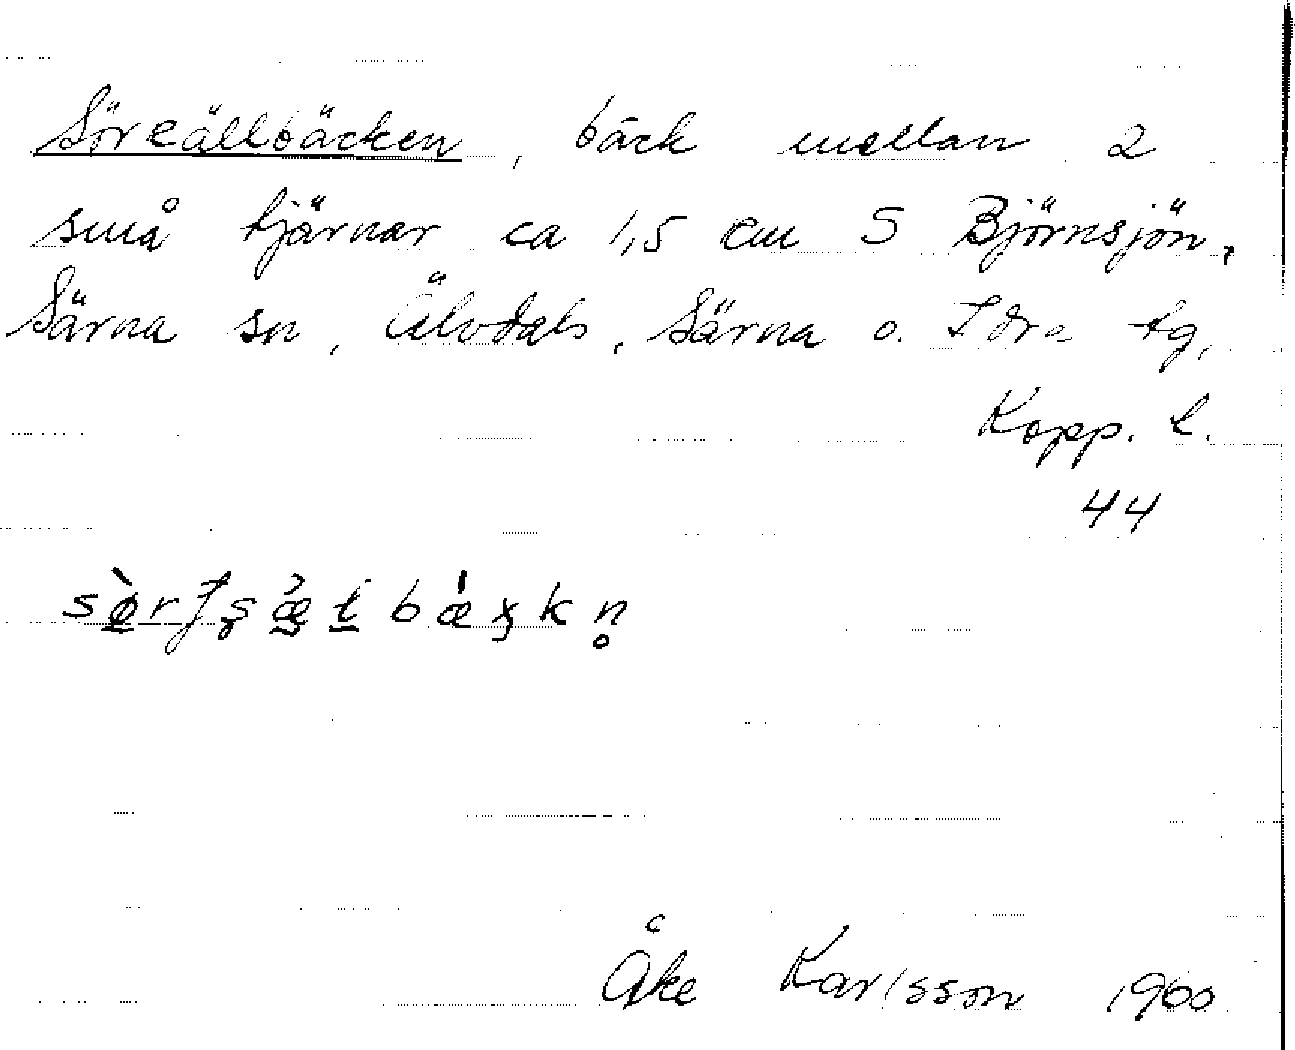 Söreällbäcken, bäck mellan 2
små tjärnar ca 1,5 cm S Björnsjön,
Särna sn, Älvdals, Särna o. Idre tg,
Kopp. l.
44
Åke Karlsson 1960